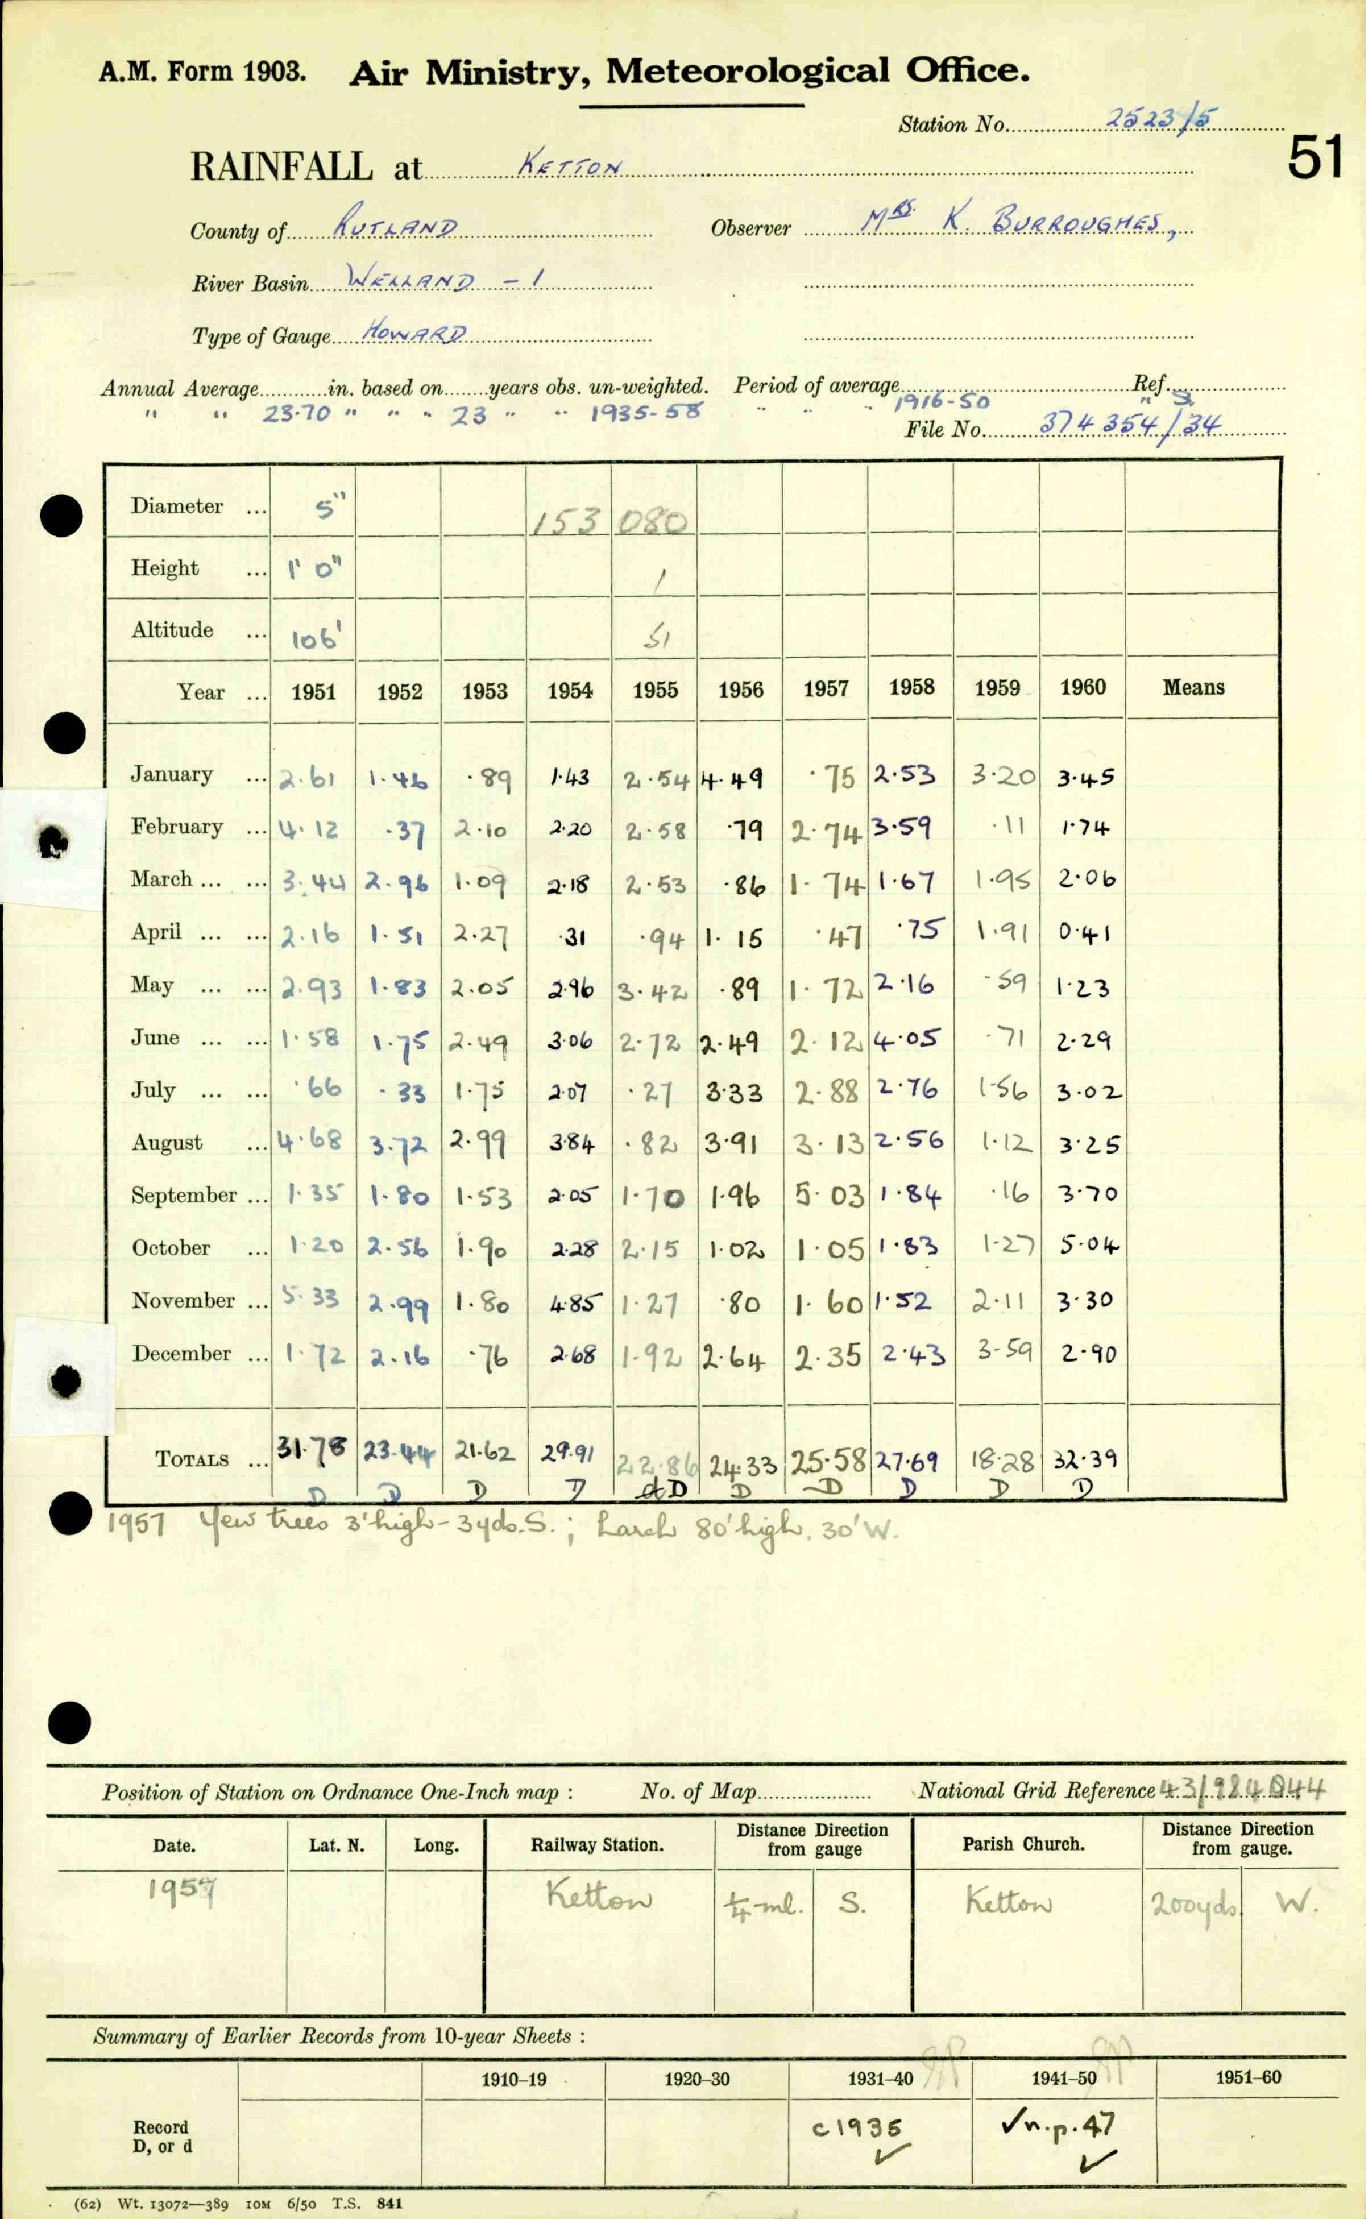 A.M. Form 1903. Air Ministry, Meteorological Office.
Station No. 2523/5
51
RAINFALL at KETTON
County of RUTLAND Observer MRS. K. BURROUGHES,
River Basin WELLAND - 1
Type of Gauge HOWARD
Annual Average in. based on years obs. un-weighted. Period of average Ref.
" " 23.70 " " " 23 " " 1935-58 " " " 1916-50 " S.
File No. 374354/34
Diameter ... 5" 153 080
Height ... 1' 0" 1
Altitude ... 106' 51
Year ... 1951 1952 1953 1954 1955 1956 1957 1958 1959 1960 Means
January ... 2.61 1.46 .89 1.43 2.54 4.49 .75 2.53 3.20 3.45
February ... 4.12 .37 2.10 2.20 2.58 .79 2.74 3.59 .11 1.74
March ... ... 3.44 2.96 1.09 2.18 2.53 .86 1.74 1.67 1.95 2.06
April ... ... 2.16 1.51 2.27 .31 .94 1.15 .47 .75 1.91 0.41
May ... ... 2.93 1.83 2.05 2.96 3.42 .89 1.72 2.16 .59 1.23
June ... ... 1.58 1.75 2.49 3.06 2.72 2.49 2.12 4.05 .71 2.29
July ... ... .66 .33 1.75 2.07 .27 3.33 2.88 2.76 1.56 3.02
August ... 4.68 3.72 2.99 3.84 .82 3.91 3.13 2.56 1.12 3.25
September ... 1.35 1.80 1.53 2.05 1.70 1.96 5.03 1.84 .16 3.70
October ... 1.20 2.56 1.90 2.28 2.15 1.02 1.05 1.83 1.27 5.04
November ... 5.33 2.99 1.80 4.85 1.27 .80 1.60 1.52 2.11 3.30
December ... 1.72 2.16 .76 2.68 1.92 2.64 2.35 2.43 3.59 2.90
TOTALS ... 31.78 23.44 21.62 29.91 22.86 24.33 25.58 27.69 18.28 32.39
D D D D d D D D D D D
1957 Yew trees 3' high - 3yds. S. ; Larch 80' high, 30' W.
Position of Station on Ordnance One-Inch map : No. of Map National Grid Reference 43/984044
Date. Lat. N. Long. Railway Station. Distance Direction from gauge Parish Church. Distance Direction from gauge.
1957 Ketton 1/4 ml. S. Ketton 200yds. W.
Summary of Earlier Records from 10-year Sheets :
1910–19 1920–30 1931–40 1941–50 1951–60
Record D, or d c1935 ✓ ✓n.p.47 ✓
(62) Wt. 13072—389 10M 6/50 T.S. 841